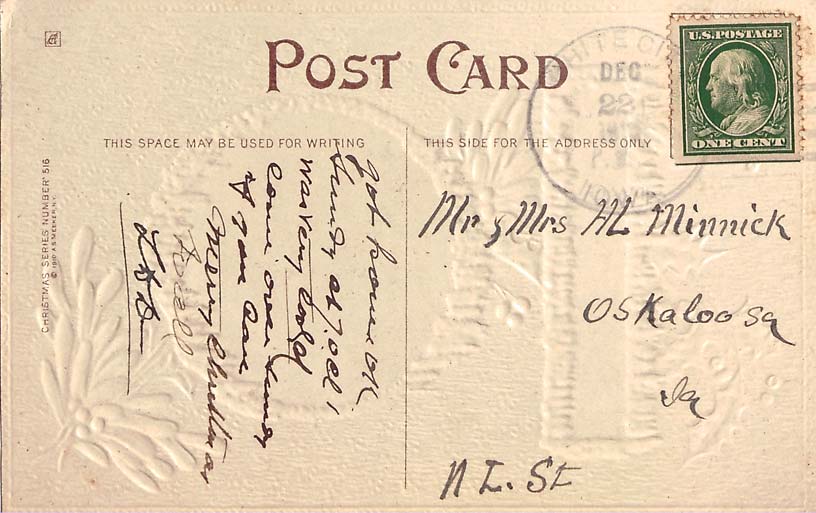 POST CARD
THIS SPACE MAY BE USED FOR WRITING
THIS SIDE FOR THE ADDRESS ONLY
WHITE CI
DEC
22
IOWA
U.S. POSTAGE
ONE CENT
CHRISTMAS SERIES NUMBER 516
© 1910 A.S. MEEKER N.Y.
got home ok
was very cold
come over
if you can
Merry Christmas
to all
Mr & Mrs AL Minnick
Oskaloosa
Ia
N E. St